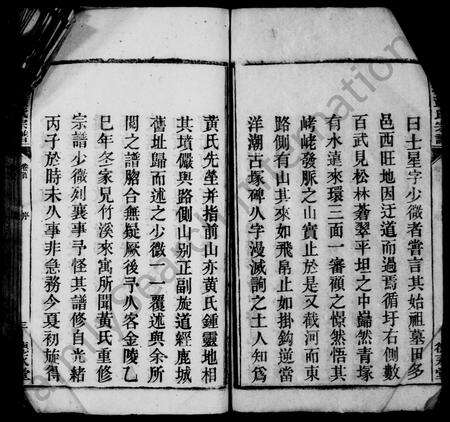 曰士星字少微者嘗言其始祖墓田多
邑西旺地因迂道而過焉循圩右側數
百武見松林蒼翠平坦之中巋然青塚
有水蓮來環三面一審顧之憬然悟其
峬峔發脈之山實止於是又截河而東
路側有山其來如飛帛止如掛鈎逆當
洋潮古塚碑人字漫滅詢之土人知為
黃氏先塋并指前山亦黃氏鍾靈地相
其墳儼與路側山別正副旋道經鹿城
舊址歸而述之少微一一覆述與余所
閱之譜脗合無疑厥後予人客金陵乙
巳年冬家兄竹溪來寓所聞黃氏重修
宗譜少微列襄事予怪其譜修自光緒
丙子於時未久事非急務今夏初旋得